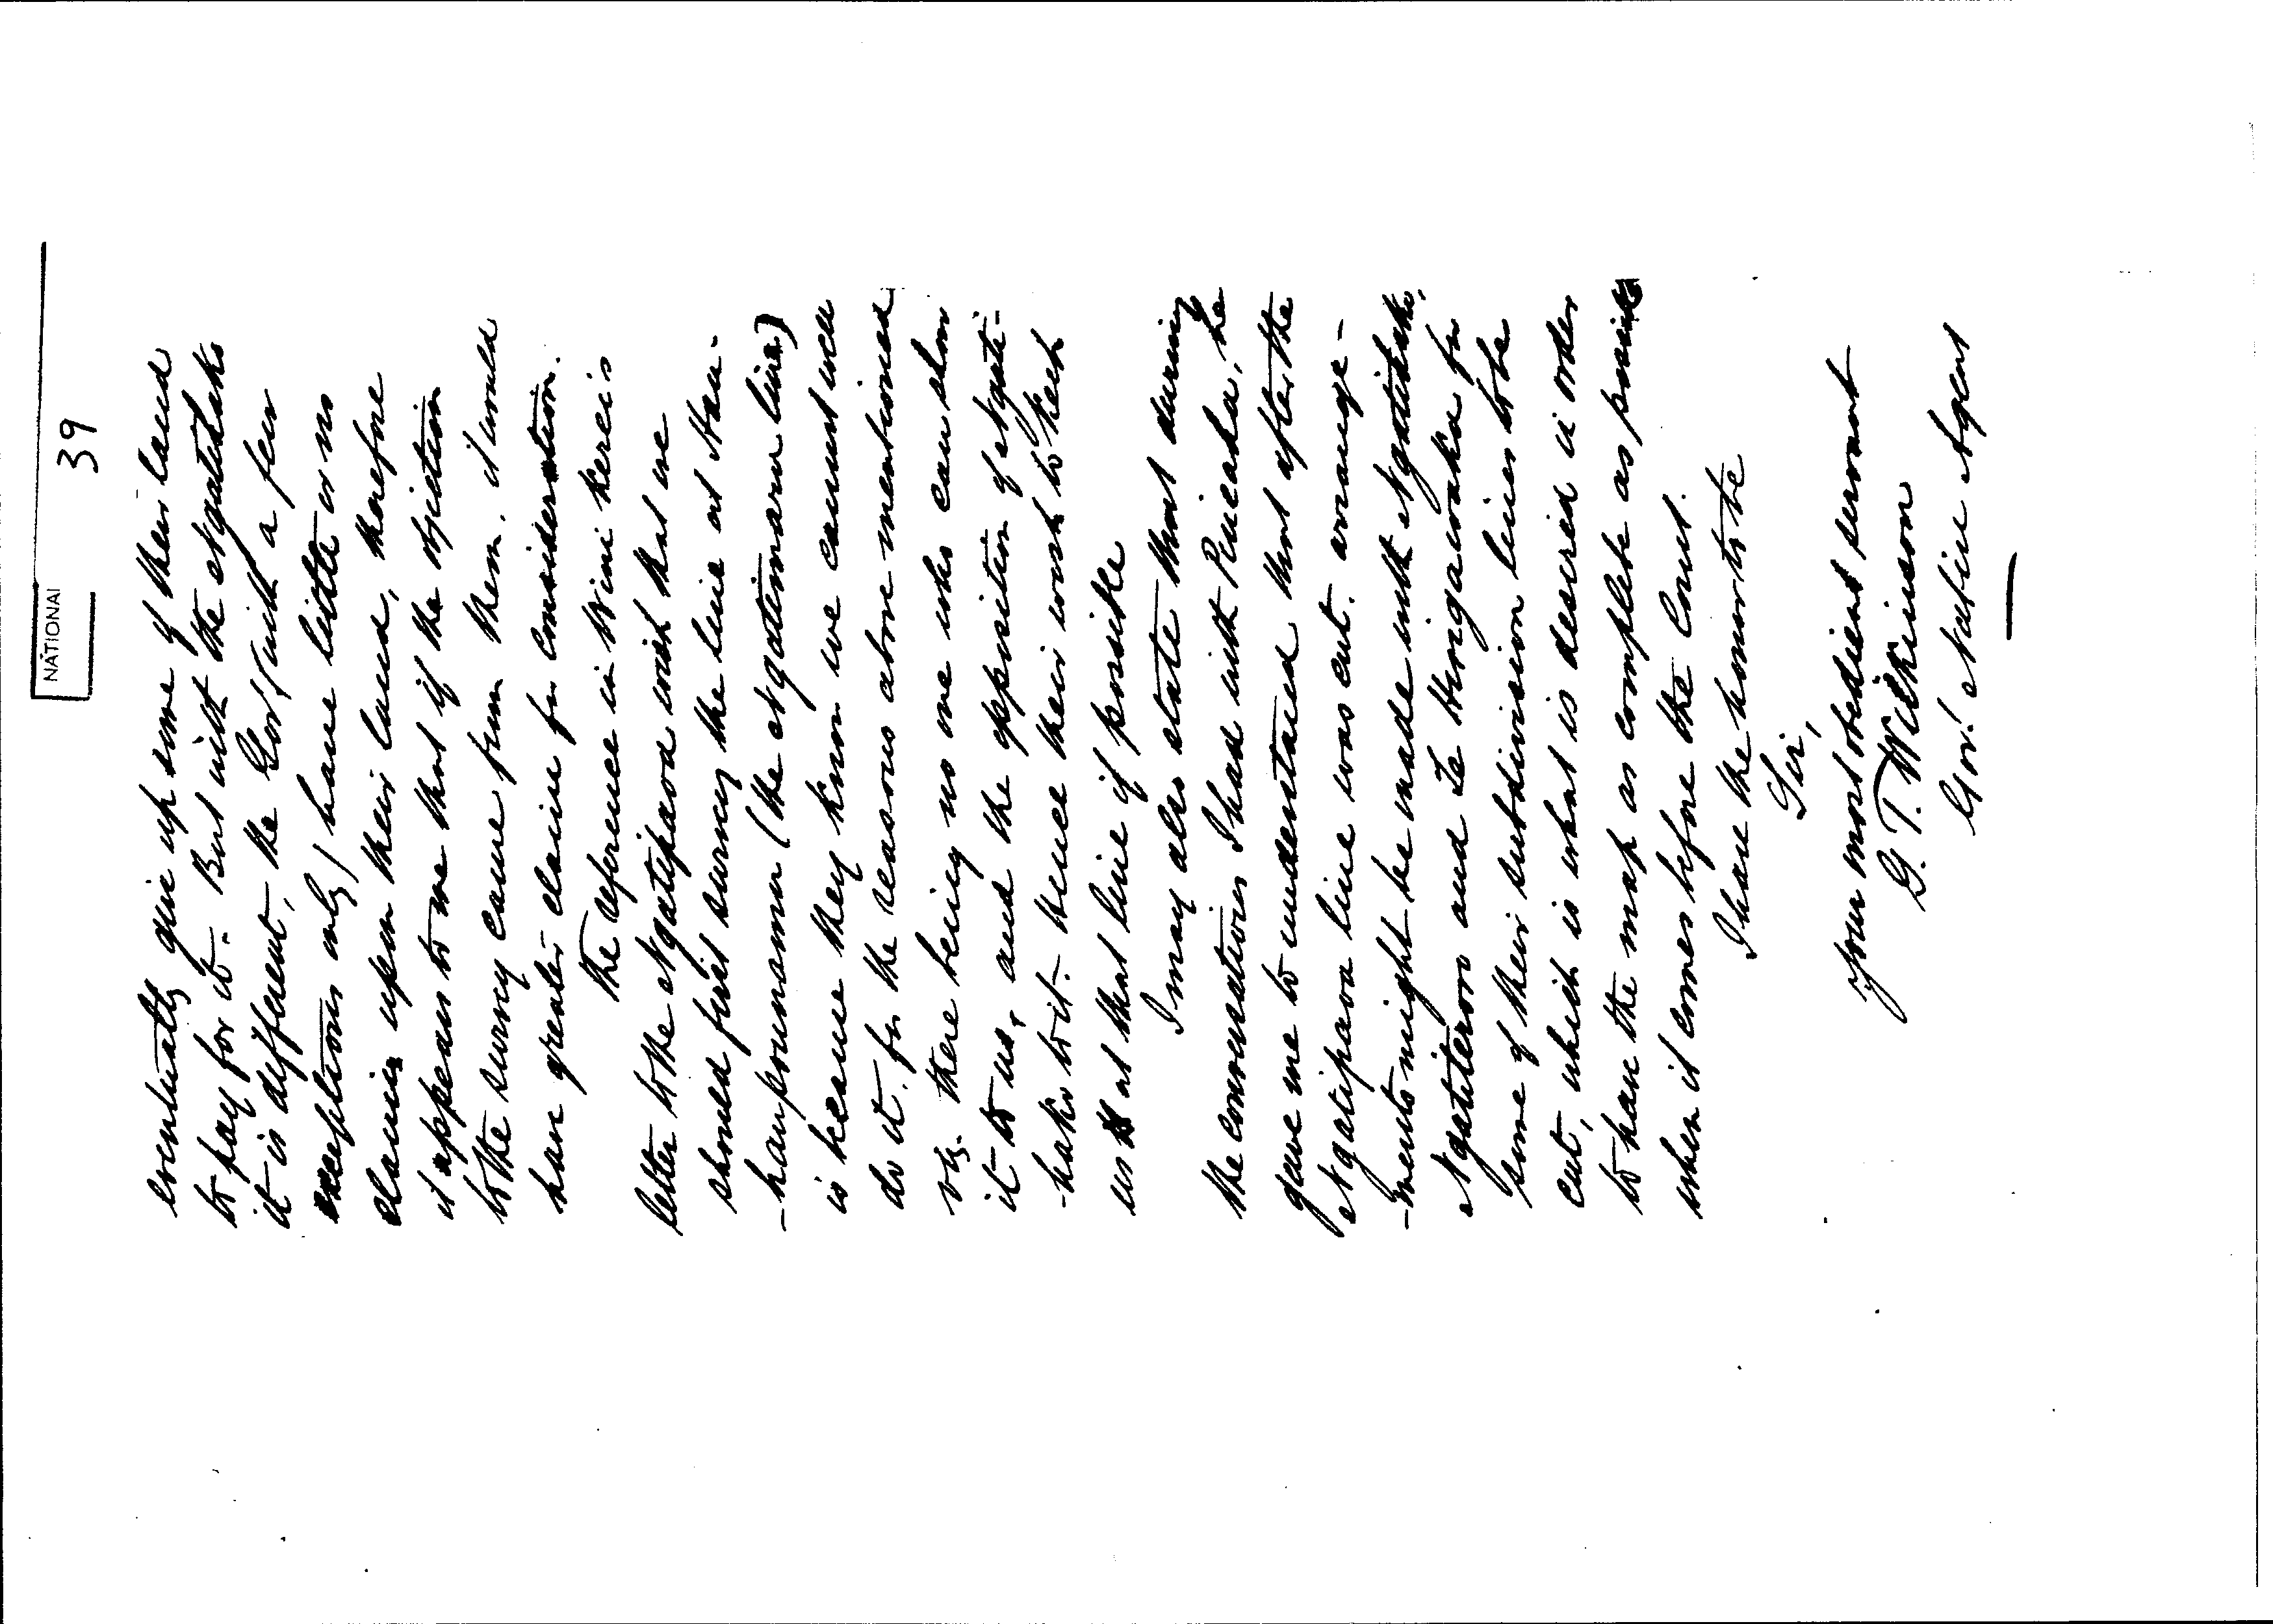 NATIONAL
39
eventually give up some of their land
to pay for it. But with the Ngatihako
it is different, the Gov.t (with a few
exceptions only) have little or no
claims upon their land, therefore
it appears to me that if the objection
to the survey came from them, it would
have greater claim for consideration.
The reference in Wini Kerei's
letter to the Ngatipaoa wish that we
should first survey the line at Hau-
-haupounamu (the Ngatimaru line)
is because they know we cannot well
do it, for the reasons above mentioned
viz. there being no one who can show
it to us, and the opposition of Ngati-
-hako to it. Hence their wish to keep
us at that line if possible
I may also state that during
the conversation I had with Pineaha, he
gave me to understand that after the
Ngatipaoa line was cut, arrange-
-ments might be made with Ngatihako,
Ngatiteroro and Te Hungawaka for
some of their subdivision lines to be
cut, which is what is desired in order
to have the map as complete as possible
when it comes before the Court.
I have the honor to be
Sir,
Your most obedient servant
G. T. Wilkinson
Gov.t Native Agent